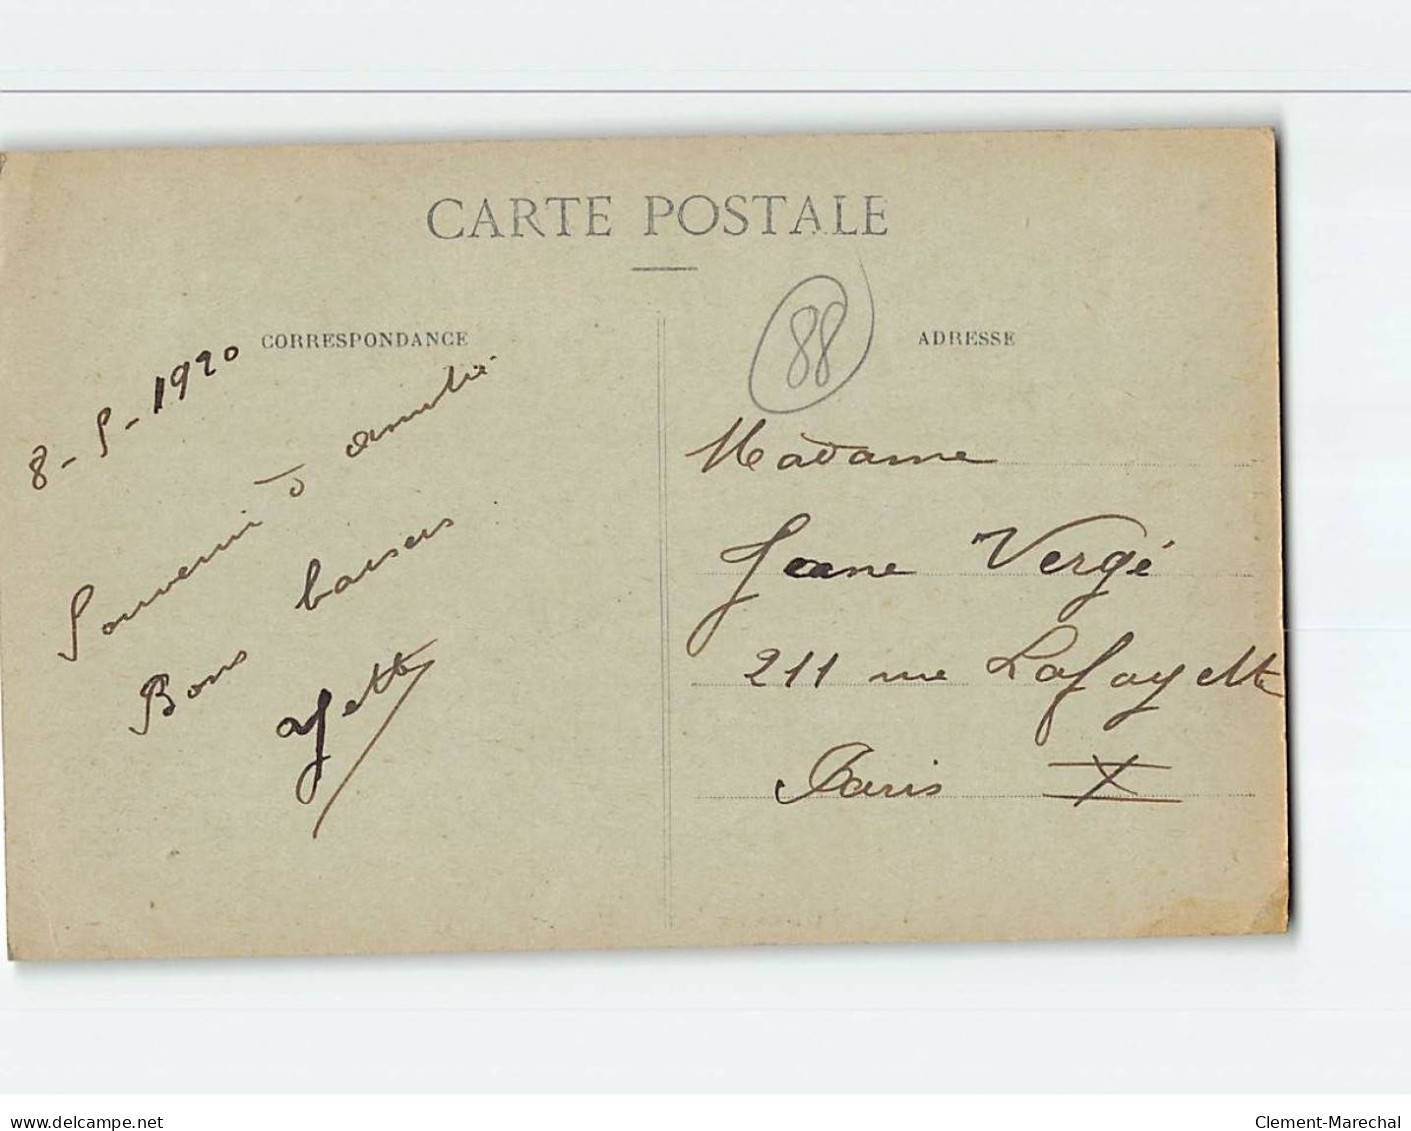 CARTE POSTALE
CORRESPONDANCE
8-5-1920
Souvenir d'amitié
Bons baisers
Yette
88
ADRESSE
Madame
Jeane Vergé
211 rue Lafayette
Paris X
www.delcampe.net
Clement-Marechal